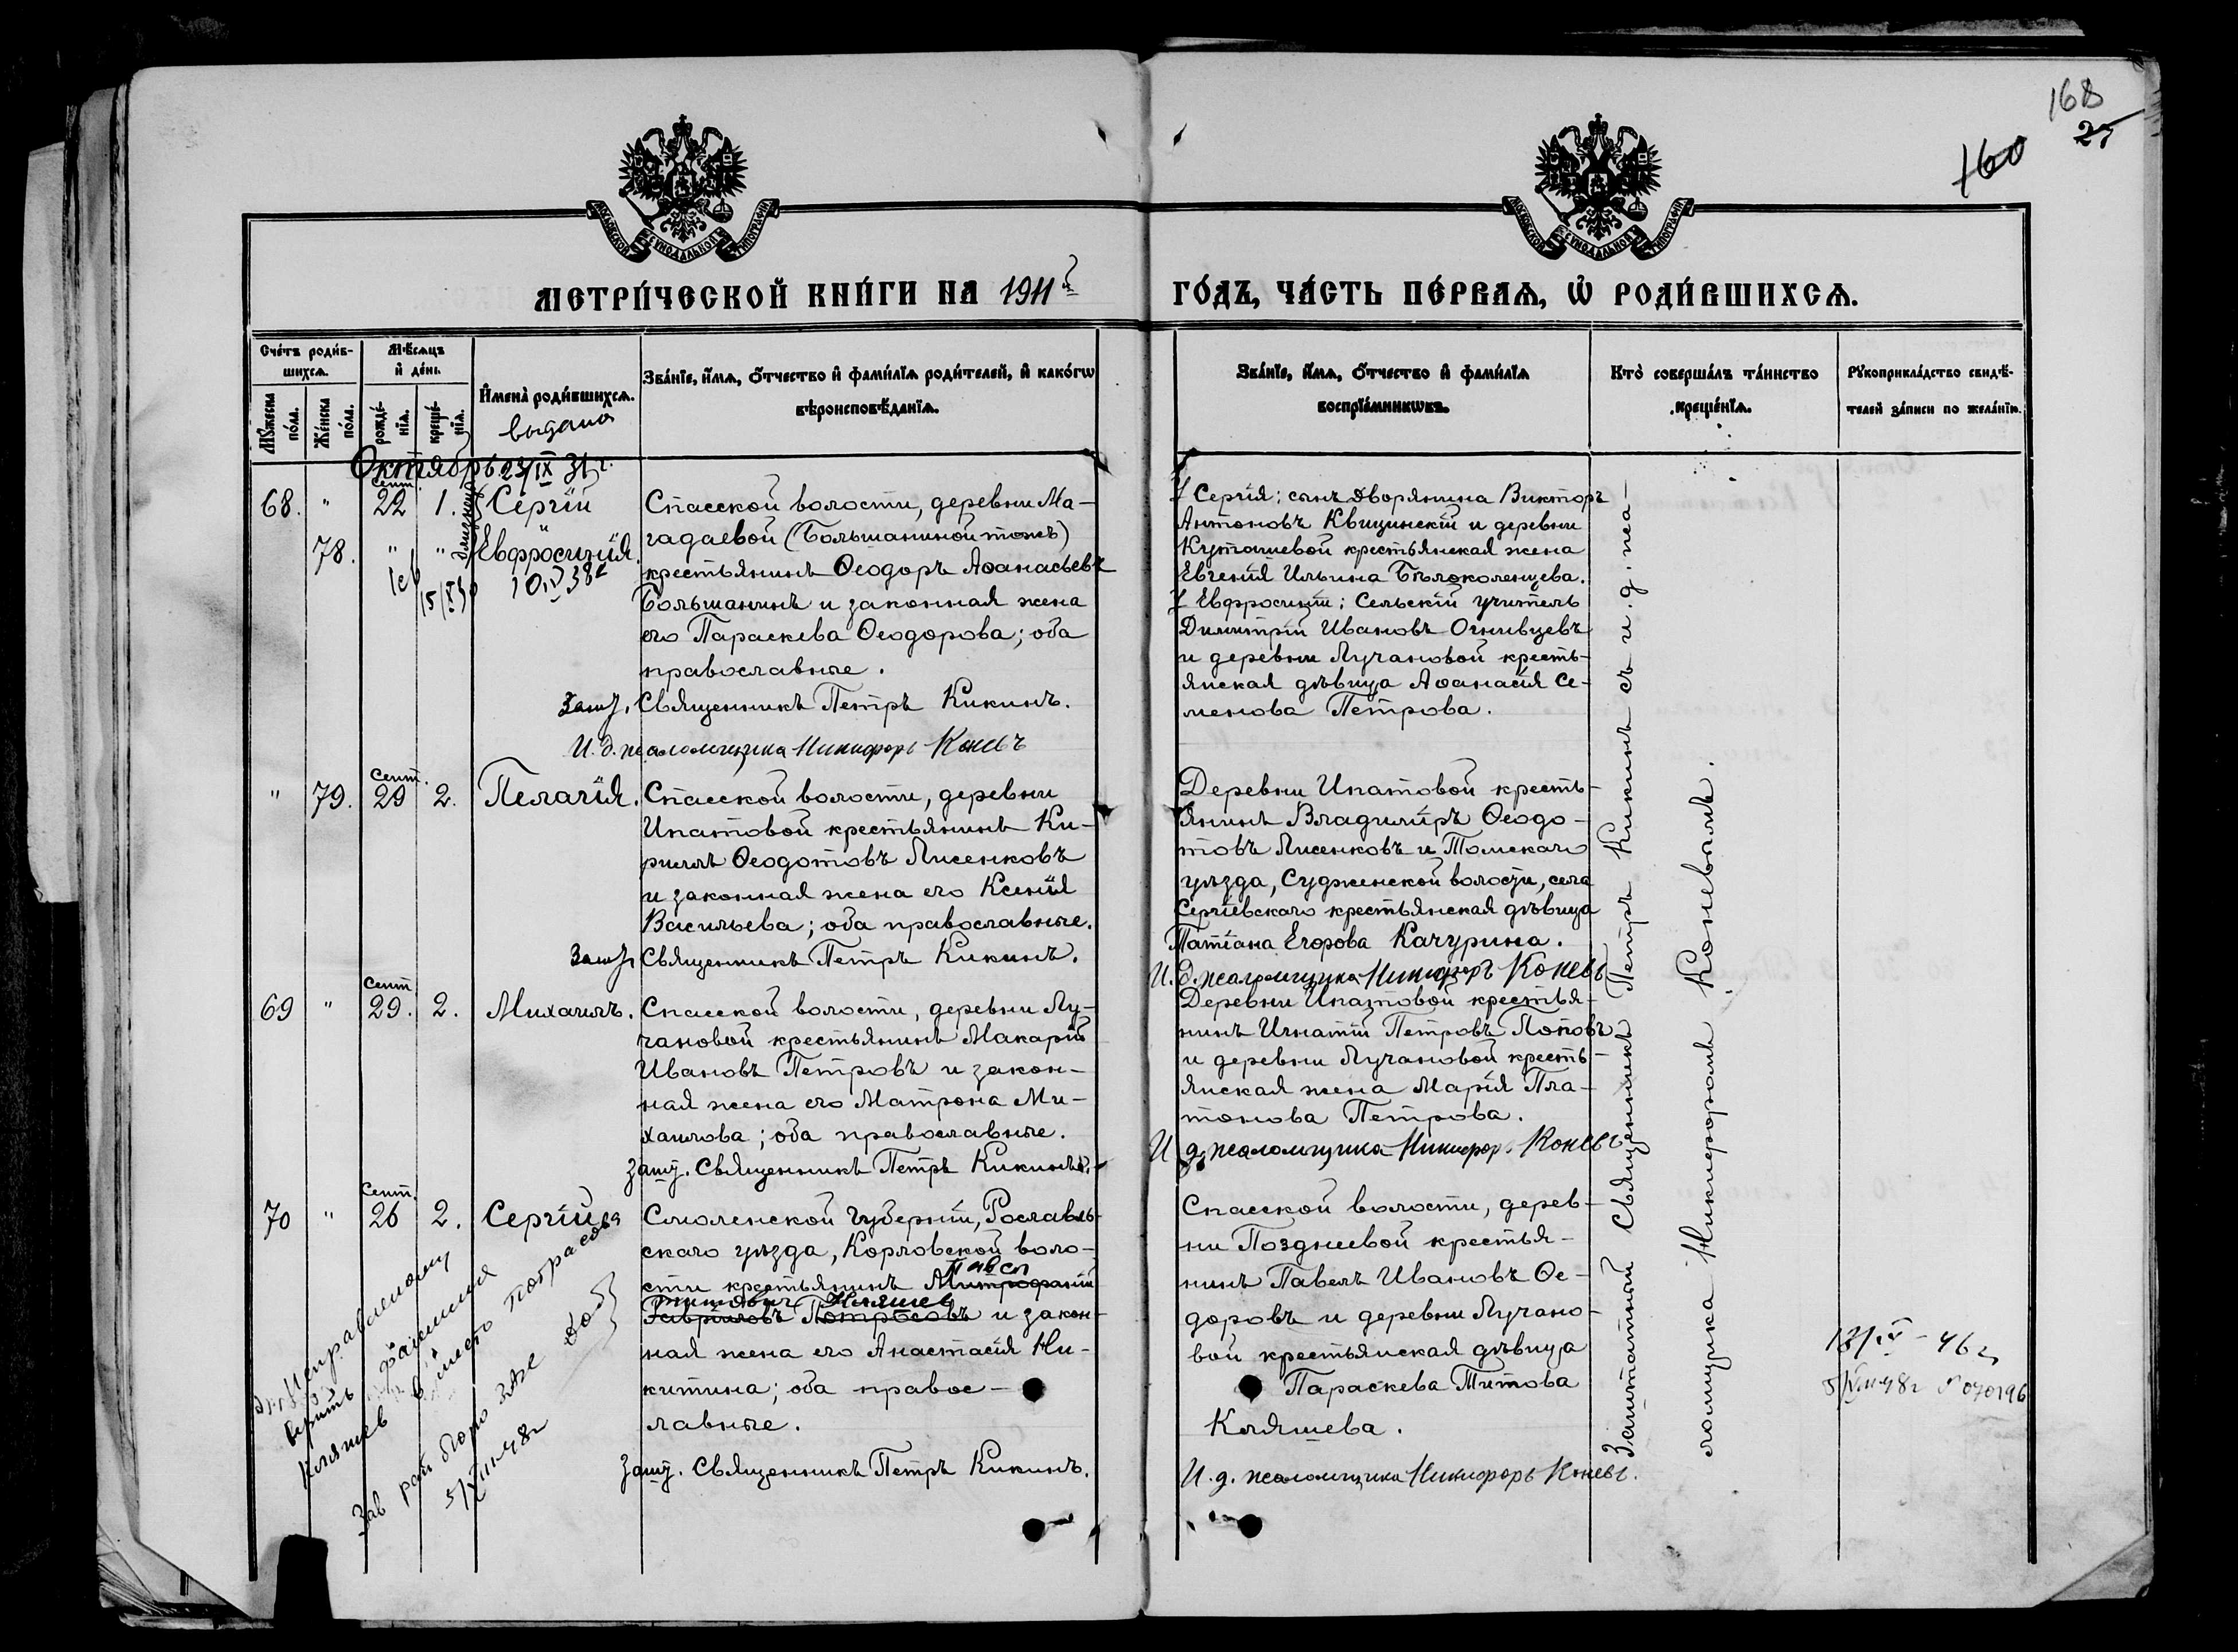 168
27
160
МОСКОВСКОЙ СѴНОДАЛЬНОЙ ТИПОГРАФІИ
МОСКОВСКОЙ СѴНОДАЛЬНОЙ ТИПОГРАФІИ
МЕТРИ́ЧЕСКОЙ КНИ́ГИ НА 1911й
ГО́ДЪ, ЧА́СТЬ ПЕ́РВАѦ, Ѡ҆ РОДИ́ВШИХСѦ.
Сче́тъ роди́в-
шихсѧ.
Мѹжеска по́ла.
Же́нска по́ла.
Мѣ́сѧцъ
и҆ де́нь
рожде́-
нїѧ.
креще́-
нїѧ.
И҆мена̀ роди́вшихсѧ.
выдана
23/IX 31 г.
Зва́нїе, и҆́мѧ, ѻ҆́тчество и҆ фами́лїѧ роди́телей, и҆ како́гѡ
вѣроисповѣ́данїѧ.
Зва́нїе, и҆́мѧ, ѻ҆́тчество и҆ фами́лїѧ
воспрїе́мникѡвъ.
Кто̀ соверша́лъ та́инство
креще́нїѧ.
Рѹкоприкла́дство свидѣ́-
телей за́писи по жела́нїю.
Октябрь
68. " Сент. 22 1. Сергій
78. " " Евфросинія.
близнецы
15/X 30
10.V 38 г
Спасской волости, деревни Ма-
гадаевой (Большаниной тожъ)
крестьянинъ Ѳеодоръ Аѳанасьевъ
Большанинъ и законная жена
его Параскева Ѳеодорова; оба
православные.
Зашт. Священникъ Петръ Кикинъ.
И. д. псаломщика Никифоръ Коневъ
Сергія: сынъ дворянина Викторъ
Антоновъ Квицинскій и деревни
Куташевой крестьянская жена
Евгенія Ильина Бѣлоколенцева.
Евфросиніи: Сельскій учитель
Димитрій Ивановъ Огнивцевъ
и деревни Лучановой кресть-
янская дѣвица Аѳанасія Се-
менова Петрова.
" 79. Сент. 29 2. Пелагія.
Спасской волости, деревни
Ипатовой крестьянинъ Ки-
риллъ Ѳеодотовъ Лисенковъ
и законная жена его Ксенія
Васильева; оба православные.
Зашт. Священникъ Петръ Кикинъ.
Деревни Ипатовой кресть-
янинъ Владиміръ Ѳеодо-
товъ Лисенковъ и Томскаго
уѣзда, Судженской волости, села
Сергіевскаго крестьянская дѣвица
Татіана Егорова Качурина.
И. д. псаломщика Никифоръ Коневъ
69 " Сент. 29. 2. Михаилъ.
Спасской волости, деревни Лу-
чановой крестьянинъ Макарій
Ивановъ Петровъ и закон-
ная жена его Матрона Ми-
хаилова; оба православные.
Зашт. Священникъ Петръ Кикинъ.
Деревни Ипатовой крестья-
нинъ Игнатій Петровъ Поповъ
и деревни Лучановой кресть-
янская жена Марія Пла-
тонова Петрова.
И. д. псаломщика Никифоръ Коневъ
70 " Сент. 26 2. Сергій
Смоленской губерніи, Рославль-
скаго уѣзда, Корловской воло-
сти крестьянинъ Митрофаній
Павел
Титович Кляшев
Гавриловъ Потрасовъ и закон-
ная жена его Анастасія Ни-
китина; оба правос-
лавные.
Зашт. Священникъ Петръ Кикинъ.
Спасской волости, дерев-
ни Поздневой крестья-
нинъ Павелъ Ивановъ Ѳе-
доровъ и деревни Лучано-
вой крестьянская дѣвица
Параскева Титова
Кляшева.
И. д. псаломщика Никифоръ Коневъ.
Заштатный Священникъ Петръ Кикинъ съ и. д. пса-
ломщика Никифоромъ Коневымъ.
Исправленому
верить фамилия
Кляшев вместо Потрасова
Зав рай бюро ЗАГС
5/VIII-48 г
13/IV-46 г
5/VIII 48 г № 070196